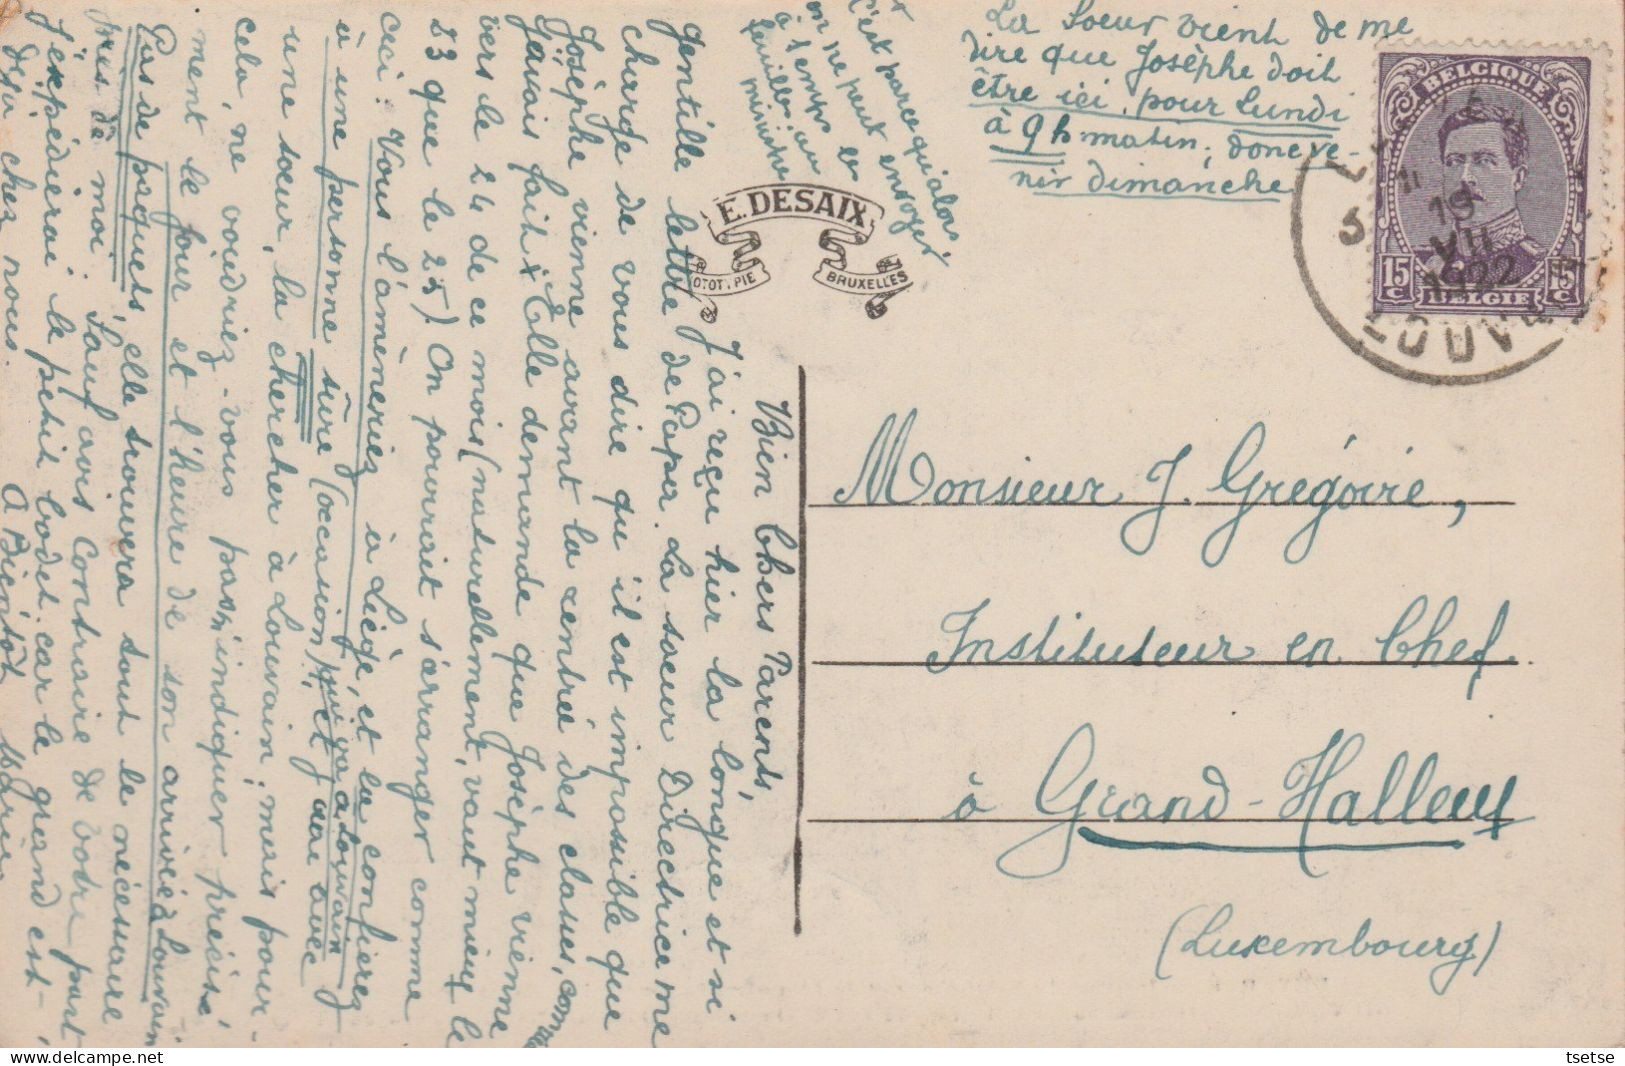 Bien Chers Parents,
J'ai reçu hier la longue et si
gentille lettre de Papa. La soeur Directrice me
charge de vous dire qu'il est impossible que
Josèphe vienne avant la rentrée des classes, comme
j'avais fait x Elle demande que Josèphe vienne
vers le 24 de ce mois (naturellement, vaut mieux le
23 que le 25). On pourrait s'arranger comme
ceci: Vous l'amèneriez à Liège, et la confieriez
à une personne sûre (occasion) qui va à Louvain
et j'irai avec
une soeur, la chercher à Louvain; mais pour
cela, ne voudriez-vous pas m'indiquer précisé-
ment le jour et l'heure de son arrivée à Louvain
Pas de paquets, elle trouvera tout le nécessaire
près de moi. Sauf avis contraire de votre part
j'expédierai le petit bodet car le grand est
déjà chez nous. A Bientôt
c'est parce qu'alors,
on ne peut envoyer
à temps les
feuilles au
ministre
La Soeur vient de me
dire que Josèphe doit
être ici pour Lundi
à 9h matin; donc ve-
nir dimanche
E. DESAIX
BRUXELLES
BELGIQUE
15 c
BELGIE
15 c
19
VII
1922
LOUV
Monsieur J. Grégoire,
Instituteur en Chef
à Grand-Halleux
(Luxembourg)
tsetse